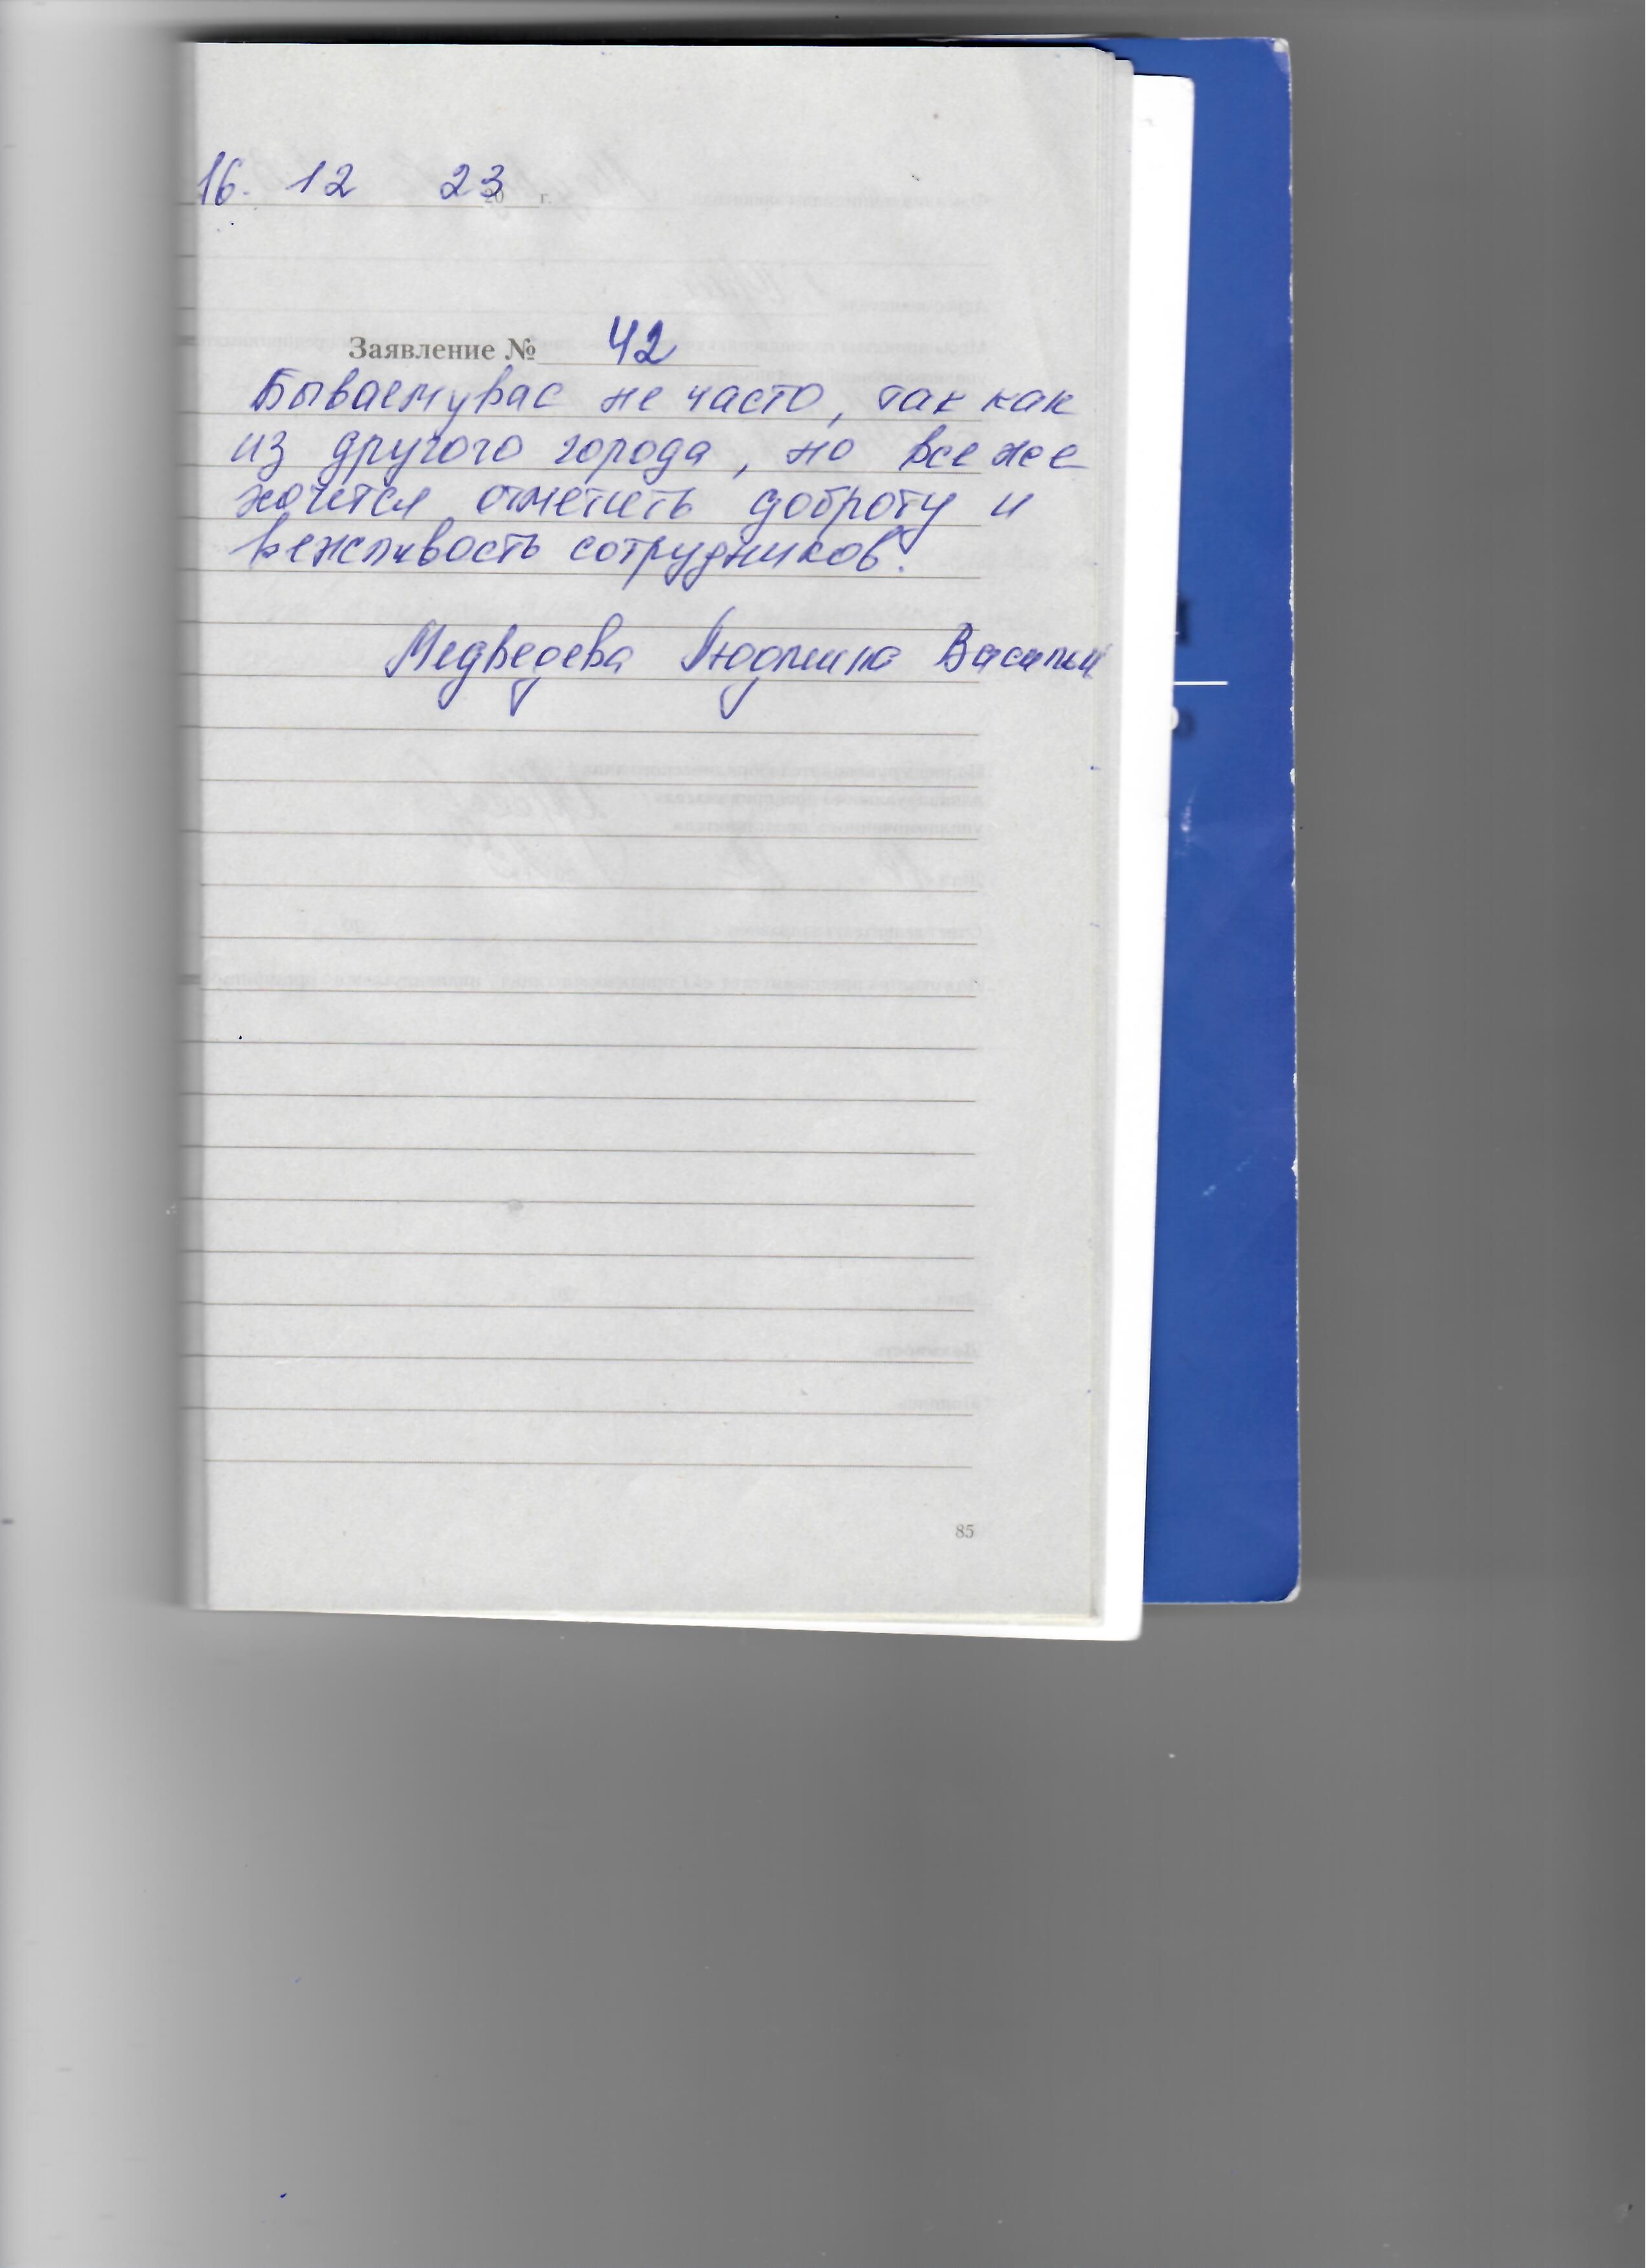 16. 12 23
20 г.
Заявление № 42
Бываем у вас не часто, так как
из другого города, но все же
хочется отметить доброту и
вежливость сотрудников.
Медведева Людмила
85